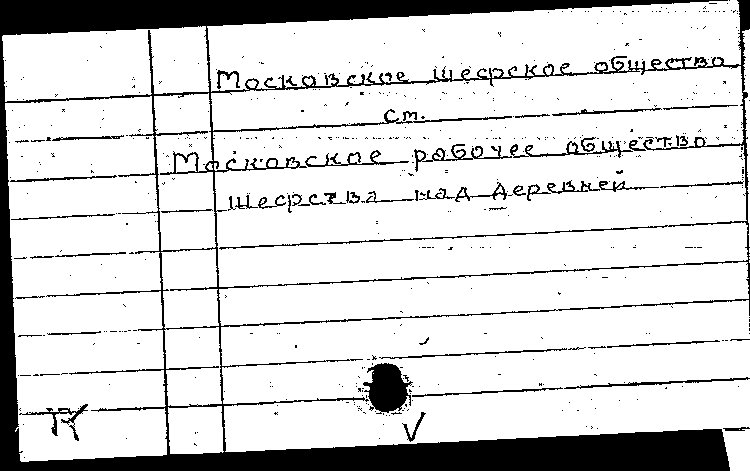 Московское шефское общество
см.
Московское рабочее общество
шефства над деревней